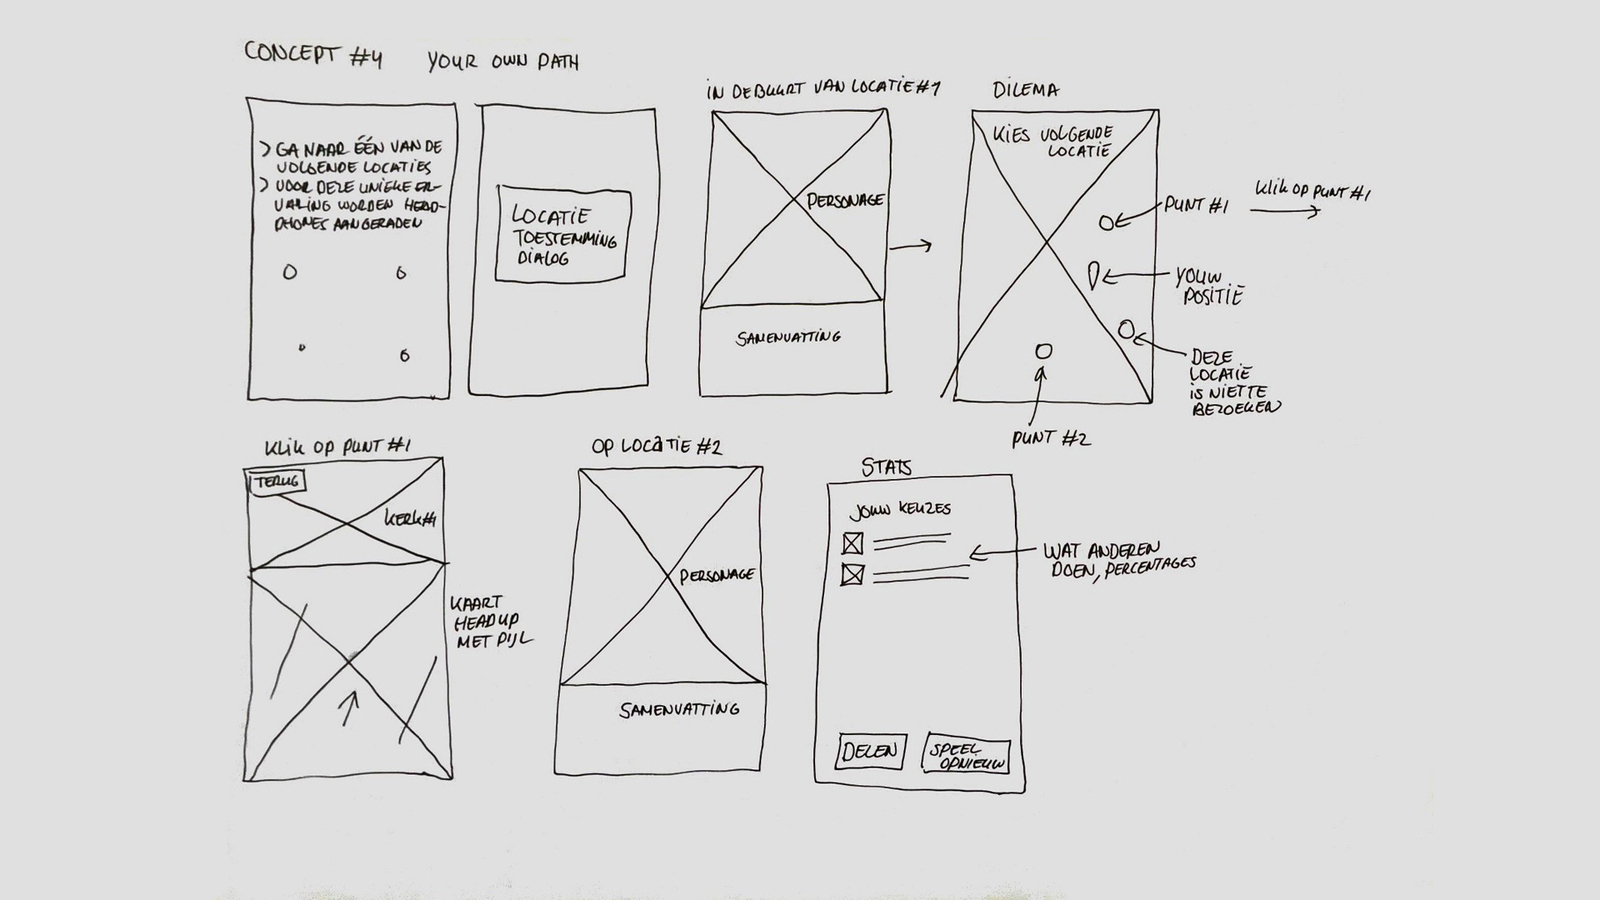 CONCEPT #4 YOUR OWN PATH
> GA NAAR ÉÉN VAN DE
VOLGENDE LOCATIES
> VOOR DEZE UNIEKE ER-
VARING WORDEN HEAD-
PHONES AANGERADEN
LOCATIE
TOESTEMMING
DIALOG
IN DE BUURT VAN LOCATIE #1
PERSONAGE
SAMENVATTING
DILEMA
KIES VOLGENDE
LOCATIE
PUNT #1
Klik OP PUNT #1
YOUW
POSITIE
DEZE
LOCATIE
IS NIET TE
BEZOEKEN
PUNT #2
KLIK OP PUNT #1
TERUG
KERK #1
KAART
HEAD UP
MET PIJL
OP LOCATIE #2
PERSONAGE
SAMENVATTING
STATS
JOUW KEUZES
WAT ANDEREN
DOEN, PERCENTAGES
DELEN
SPEEL
OPNIEUW